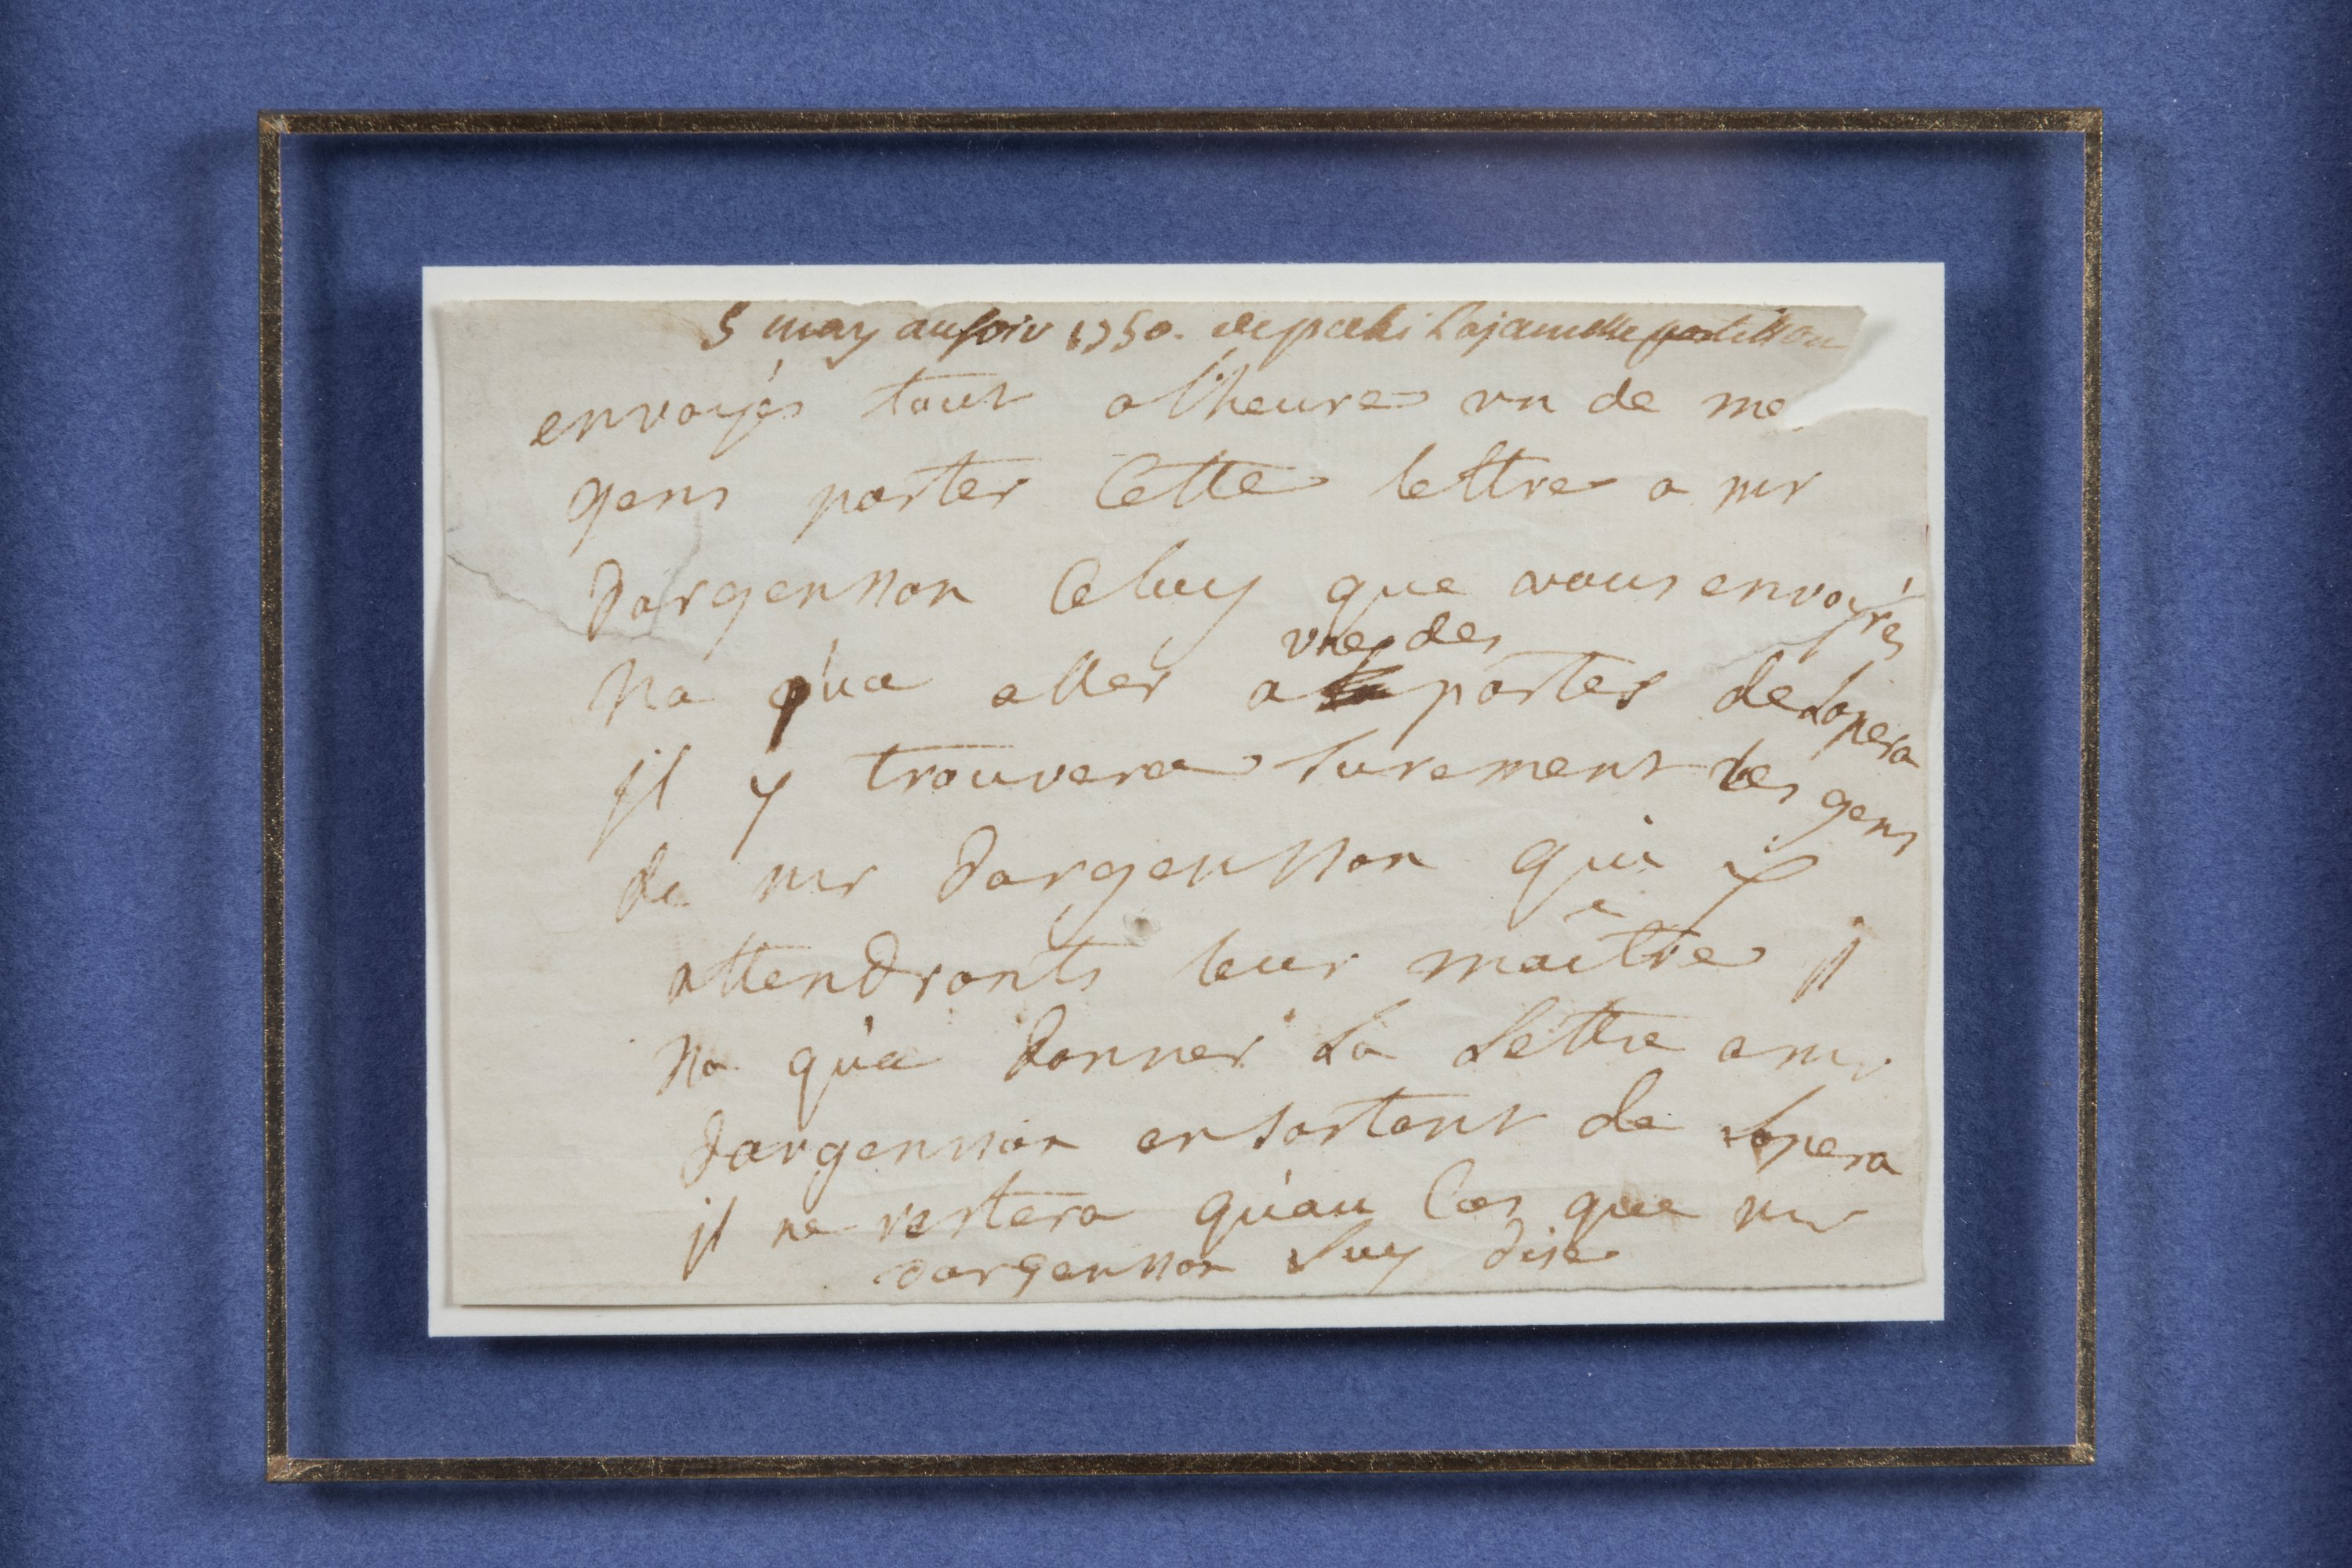 5 may au soir 1750. depeché Lajeunesse postillon
envoyés tout alheure un de me
gens porter Cette lettre a mr
Dargensson Celuy que vous envoyrés
Na qua aller a une des portes de Lopera
jl y trouvera surement des gens
de mr Dargensson qui y
attendronts leur maître jl
Na qua donner La Lettre a mr
Dargensson en sortant de Lopera
jl ne restera quau Cas que mr
dargensson Luy dise